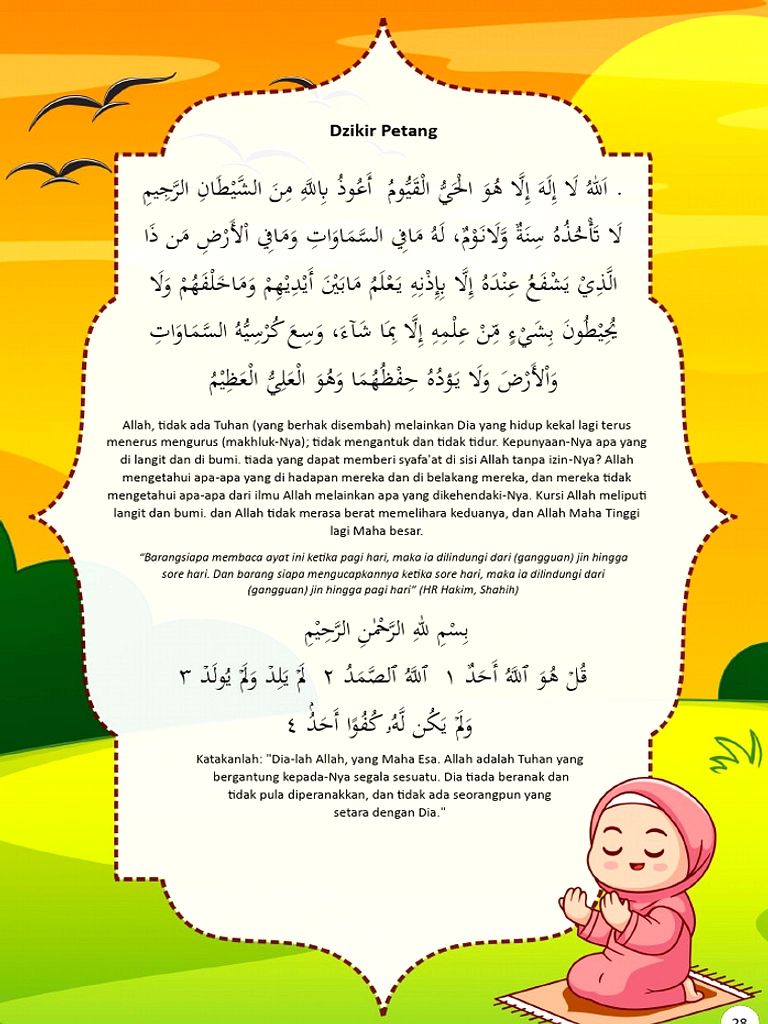 Dzikir Petang
. اَللهُ لَا إِلَهَ إِلَّا هُوَ الْحَيُّ الْقَيُّومُ أَعُوذُ بِاللهِ مِنَ الشَّيْطَانِ الرَّجِيمِ
لَا تَأْخُذُهُ سِنَةٌ وَّلَانَوْمٌ، لَهُ مَافِي السَّمَاوَاتِ وَمَافِي اْلأَرْضِ مَن ذَا
الَّذِيْ يَشْفَعُ عِنْدَهُ إِلَّا بِإِذْنِهِ يَعْلَمُ مَابَيْنَ أَيْدِيْهِمْ وَمَاخَلْفَهُمْ وَلَا
يُحِيْطُونَ بِشَيْءٍ مِّنْ عِلْمِهِ إِلَّا بِمَا شَآءَ، وَسِعَ كُرْسِيُّهُ السَّمَاوَاتِ
وَاْلأَرْضَ وَلَا يَؤدُهُ حِفْظُهُمَا وَهُوَ الْعَلِيُّ الْعَظِيْمُ
Allah, tidak ada Tuhan (yang berhak disembah) melainkan Dia yang hidup kekal lagi terus
menerus mengurus (makhluk-Nya); tidak mengantuk dan tidak tidur. Kepunyaan-Nya apa yang
di langit dan di bumi. tiada yang dapat memberi syafa'at di sisi Allah tanpa izin-Nya? Allah
mengetahui apa-apa yang di hadapan mereka dan di belakang mereka, dan mereka tidak
mengetahui apa-apa dari ilmu Allah melainkan apa yang dikehendaki-Nya. Kursi Allah meliputi
langit dan bumi. dan Allah tidak merasa berat memelihara keduanya, dan Allah Maha Tinggi
lagi Maha besar.
“Barangsiapa membaca ayat ini ketika pagi hari, maka ia dilindungi dari (gangguan) jin hingga
sore hari. Dan barang siapa mengucapkannya ketika sore hari, maka ia dilindungi dari
(gangguan) jin hingga pagi hari” (HR Hakim, Shahih)
بِسْمِ للهِ الرَّحْمٰنِ الرَّحِيْمِ
قُلْ هُوَ ٱللَّهُ أَحَدٌ ١ ٱللَّهُ ٱلصَّمَدُ ٢ لَمْ يَلِدْ وَلَمْ يُولَدْ ٣
وَلَمْ يَكُن لَّهُۥ كُفُوًا أَحَدٌۢ ٤
Katakanlah: "Dia-lah Allah, yang Maha Esa. Allah adalah Tuhan yang
bergantung kepada-Nya segala sesuatu. Dia tiada beranak dan
tidak pula diperanakkan, dan tidak ada seorangpun yang
setara dengan Dia."
28